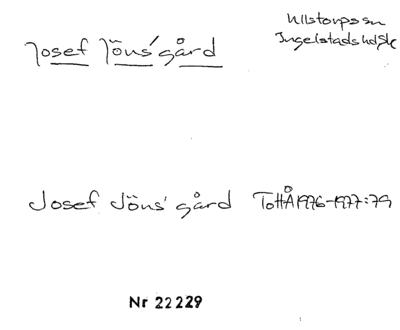 Ullstorps sn
Ingelstads hd Sk
Josef Jöns' gård
Josef Jöns' gård ToHÅ 1976-1977:79
Nr 22229